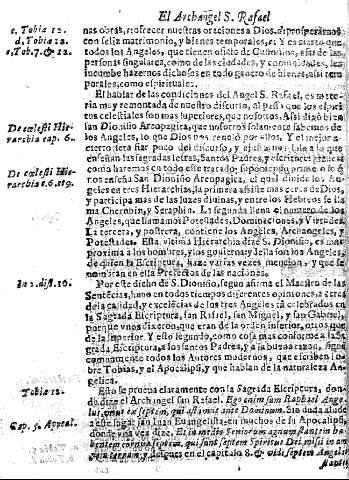 El Archangel S. Rafael
c, Tobia 12.
d, Tobia 12.
e, Tob. 7. & 12.
nas obras, ofrecer nuestras oraciones a Dios, prosperarnos
con feliz matrimonio, y bienes temporales, &c. Y es cierto que
todos los Angeles, que tienen oficio de Custodios, assi de las
personas singulares, como de las ciudades, comunidades, les
incumbe hazernos dichosos en todo genero de bienes, assi tem
porales, como espirituales.
El hablar de las condiciones del Angel S. Rafael, es mate
ria muy remontada de nuestro discurso, al passo que los espiri
tus celestiales son mas superiores, que nosotros. Assi dixo bien
De cœlesti Hie-
rarchia cap. 6.
san Dionisio Areopagita, que nosotros solamente sabemos de
los Angeles, lo que Dios nos revelò por ellos. Y el mejor a-
cierto sera fiar poco del discurso, y ajustarnos a lo que
enseñan las sagradas letras, Santos Padres, y escritores
como haremos en todo este tratado,
De cœlesti Hie-
rarchia c. 6. & 9.
nos enseña San Dionisio Areopagita, el qual divide los An-
geles en tres Hierarchias, la primera assiste mas cerca de Dios,
y participa mas de las luzes divinas, y entre los Hebreos se lla
ma Cherubin, y Seraphin. La segunda llena el numero de los
Angeles, que llamamos Potestades, Dominaciones, y Virtudes.
La tercera, y postrera, contiene los Angeles, Archangeles, y
Potestades. Esta ultima Hierarchia dize S. Dionisio, es mas
proxima a los hombres, y los govierna, y dellos son los Angeles,
de quien la Escriptura, haze varias vezes mencion, y que se
nombran en ella Prefectos de las naciones.
In 2. dist. 10.
Por este dicho de S. Dionisio, segun afirma el Maestro de las
Sentẽcias, huvo en todos tiempos diferentes opiniones, acerca
de la calidad, y excelẽcias de los tres Angeles tã celebrados en
la Sagrada Escriptura, san Rafael, san Miguel, y san Gabriel,
porque unos dixeron, que eran de la orden inferior, otros que
de la superior. Y esto segundo, como cosa mas conforme a la Sa
grada Escriptura, a los santos Padres, y a la buena razon, siguẽ
comunmente todos los Autores modernos, que escriben so-
bre Tobias, y el Apocalipsi, y que hablan de la naturaleza An
gelica.
Tobia 12.
Esto se prueba claramente con la Sagrada Escriptura, don-
de dize el Archangel san Rafael. Ego enim sum Raphael Ange-
lus, unus ex septem, qui astamus ante Dominum. Sin duda alude
Cap. 5. Apocal.
a este lugar san Juan Evangelista, en muchos de su Apocalipsi,
donde una vez dize. Et in medio Seniorum agnum stantem ha-
bentem cornua septem, qui sunt septem Spiritus Dei, missi in om
nem terram, y despues en el capitulo 8. & vidi septem Angelos
stantes